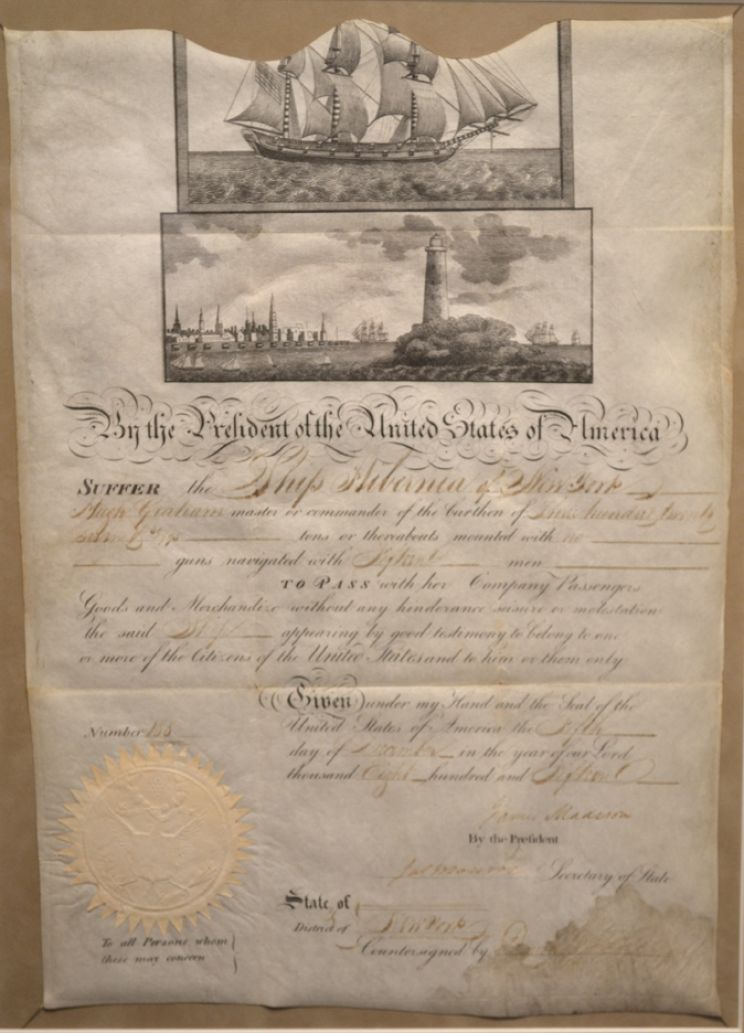 By the President of the United States of America
SUFFER the Ship Hibernia of New York
Hugh Graham master or commander of the burthen of Three hundred twenty
tons or thereabouts mounted with no
guns navigated with Sixteen men
TO PASS with her Company Passengers
Goods and Merchandize without any hinderance seisure or molestation
the said Ship appearing by good testimony to belong to one
or more of the Citizens of the United States and to him or them only
Given under my Hand and the Seal of the
United States of America the
day of in the year of our Lord
thousand Eight hundred and
Number 185
James Madison
By the President
Jas Monroe Secretary of State
State of
District of New York
Countersigned by
To all Persons whom
these may concern